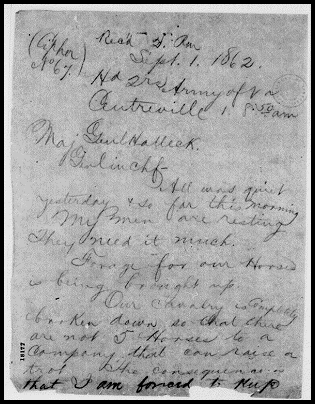 (Cipher
No 67)
Recd 5. Pm
Sept. 1. 1862.
Hd Qrs Army of Va
Centreville 1 8:50 am
Maj Genl Halleck.
Genlinchf-
All was quiet
yesterday & so far this morning
My men are resting
They need it much.
Forage for our Horses
is being brought up
Our cavalry is completely
broken down so that there
are not 5 Horses to a
company that can raise a
trot The consequence is
that I am forced to keep
18177